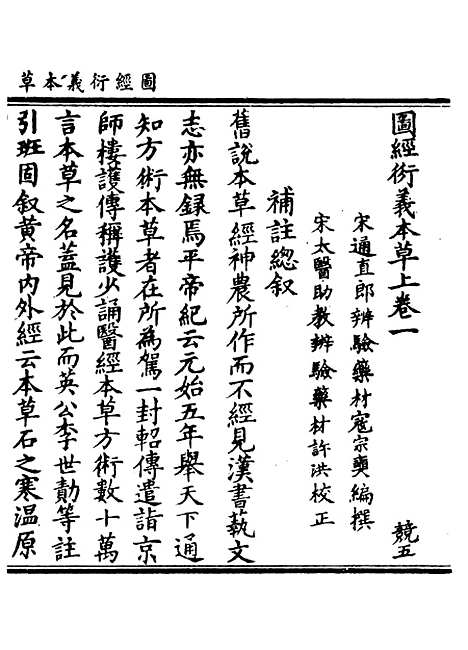 圖經衍義本草
圖經衍義本草上卷一 競五
宋通直郎辨驗藥材寇宗奭編撰
宋太醫助教辨驗藥材許洪校正
補註總叙
舊說本草經神農所作而不經見漢書藝文
志亦無録焉平帝紀云元始五年舉天下通
知方術本草者在所為駕一封軺傳遣詣京
師樓護傳稱護少誦醫經本草方術數十萬
言本草之名蓋見於此而英公李世勣等註
引班固叙黄帝内外經云本草石之寒温原